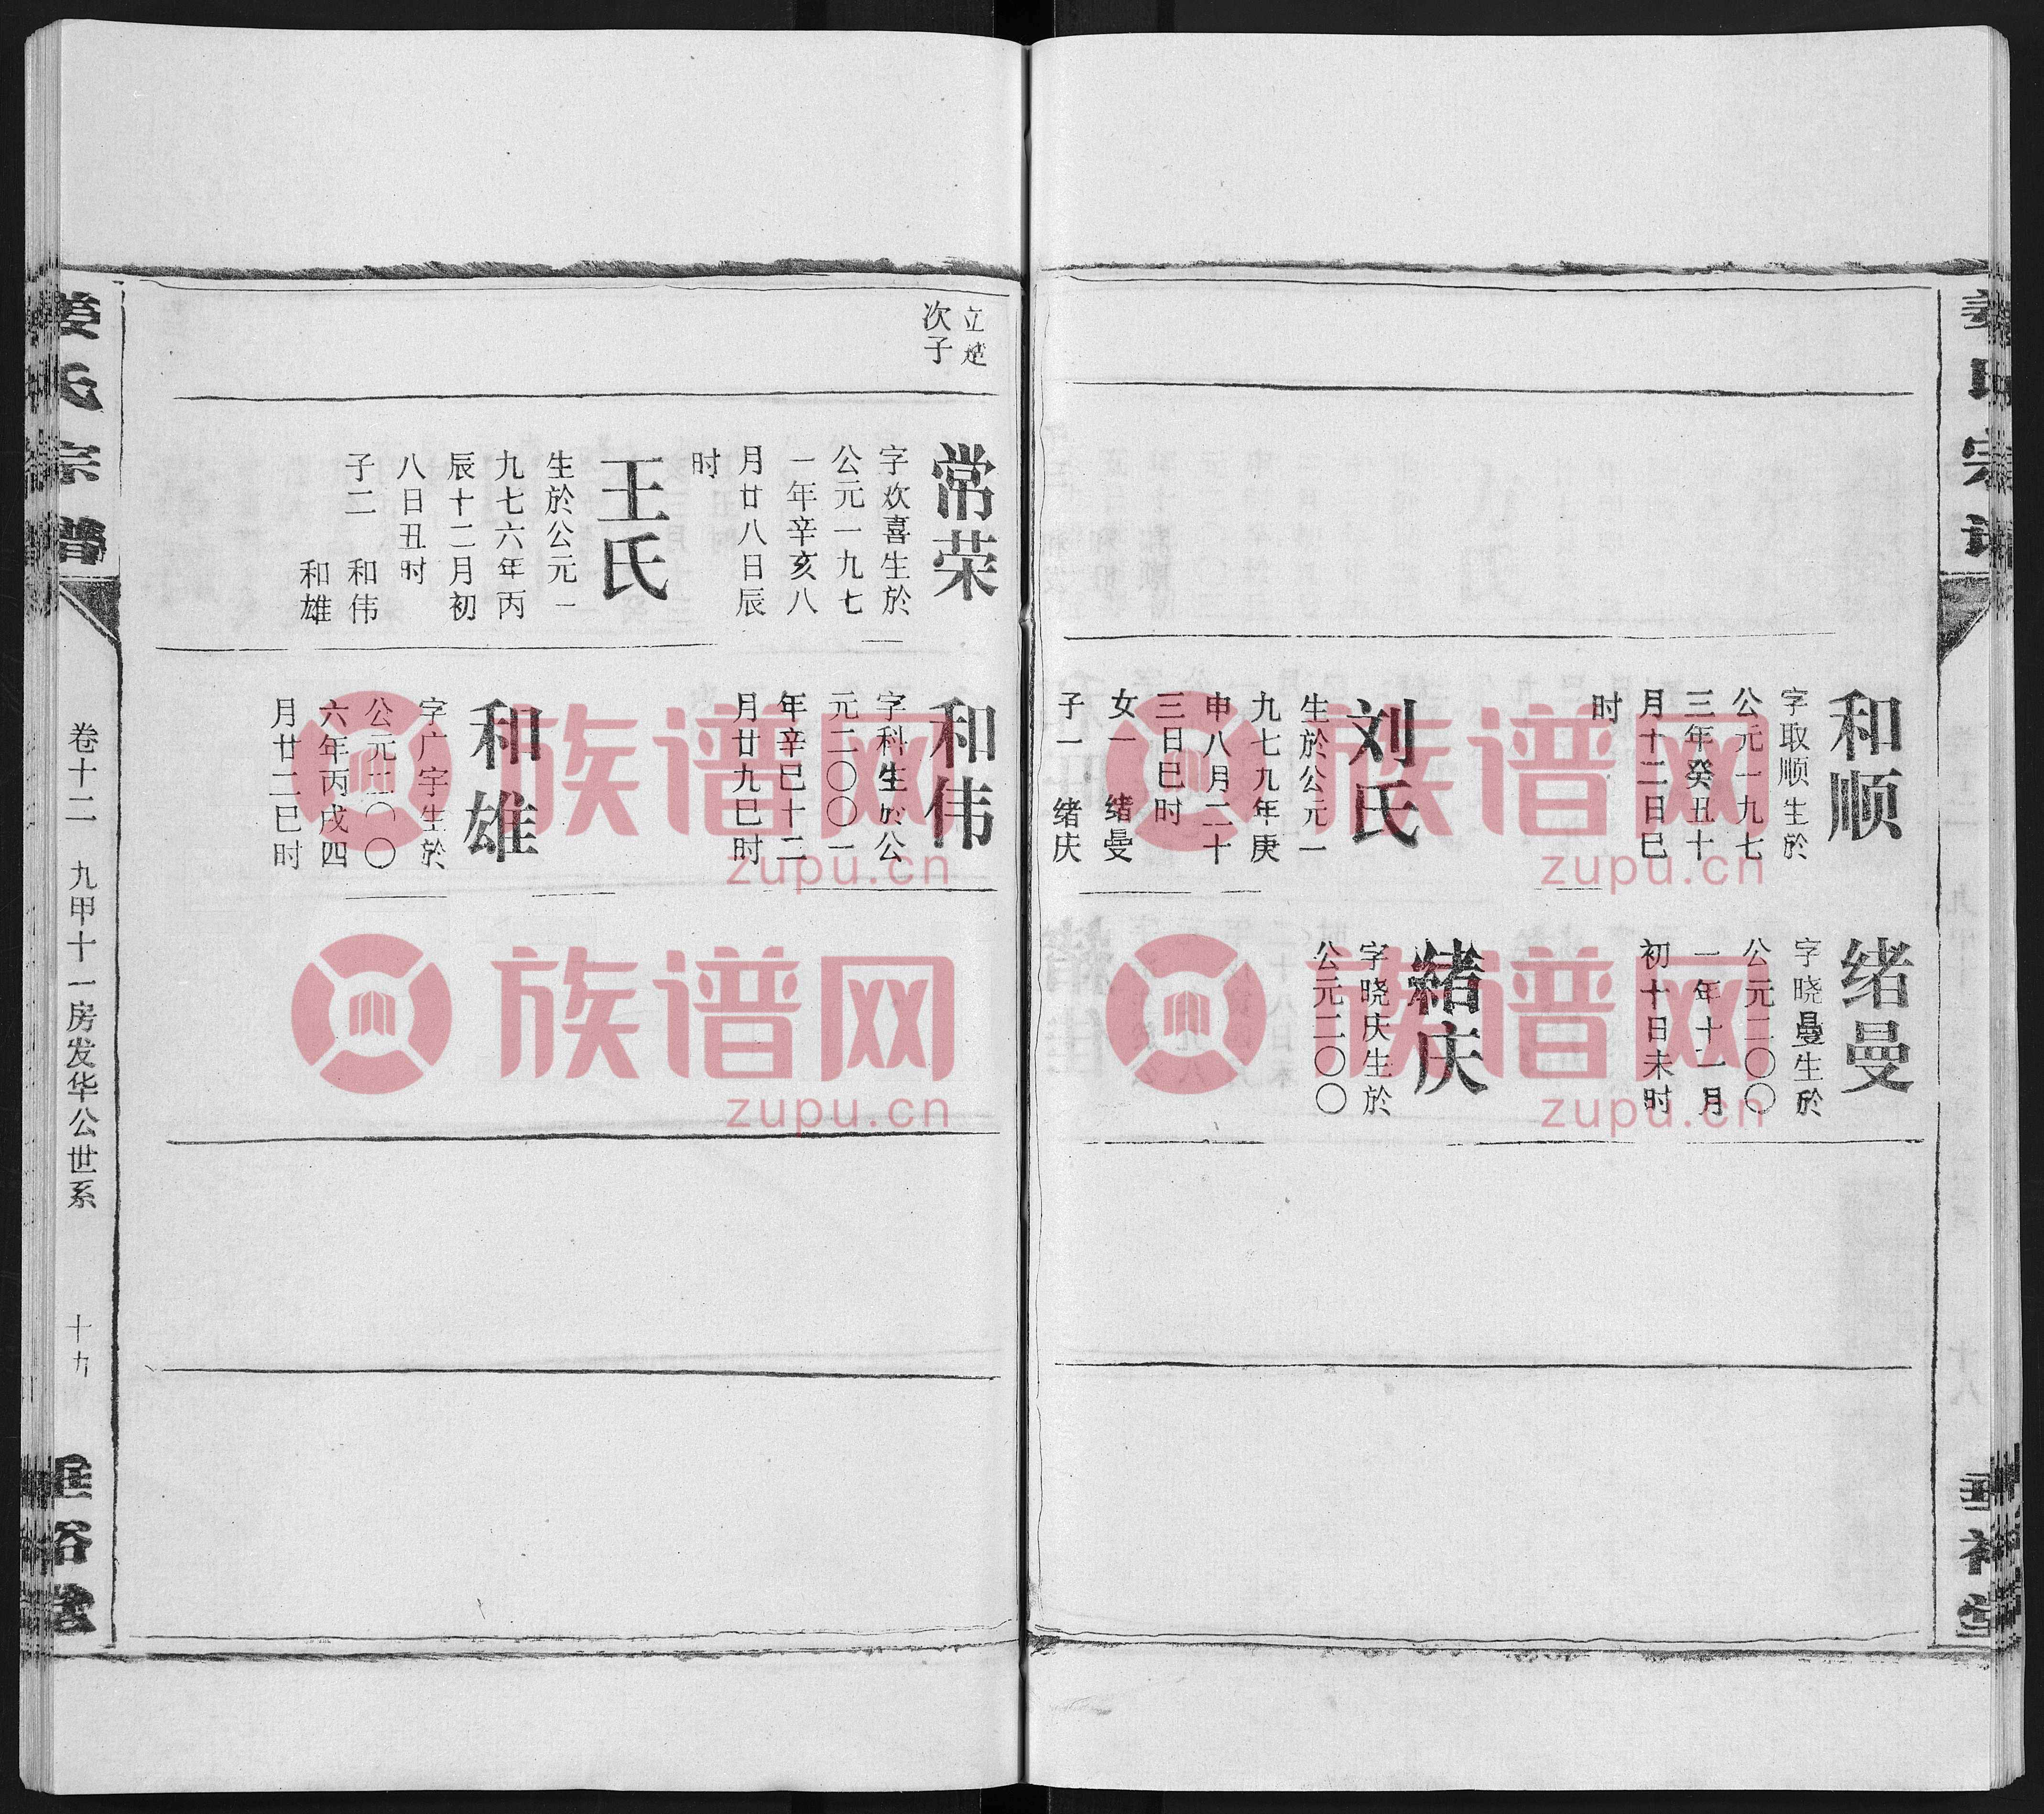 和顺
字取顺生於
公元一九七
三年癸丑十
月十二日巳
时
刘氏
生於公元一
九七九年庚
申八月二十
三日巳时
女一 绪曼
子一 绪庆
绪曼
字晓曼生於
公元二〇〇
一年十二月
初十日未时
绪庆
字晓庆生於
公元二〇〇
立楚
次子
常荣
字欢喜生於
公元一九七
一年辛亥八
月廿八日辰
时
王氏
生於公元一
九七六年丙
辰十二月初
八日丑时
子二 和伟
和雄
和伟
字科生於公
元二〇〇一
年辛巳十二
月廿九巳时
和雄
字广宇生於
公元二〇〇
六年丙戌四
月廿二巳时
氏宗谱
卷十二 九甲十一房发华公世系
十九
垂裕堂
族谱网
zupu.cn
族谱网
zupu.cn
族谱网
zupu.cn
族谱网
zupu.cn